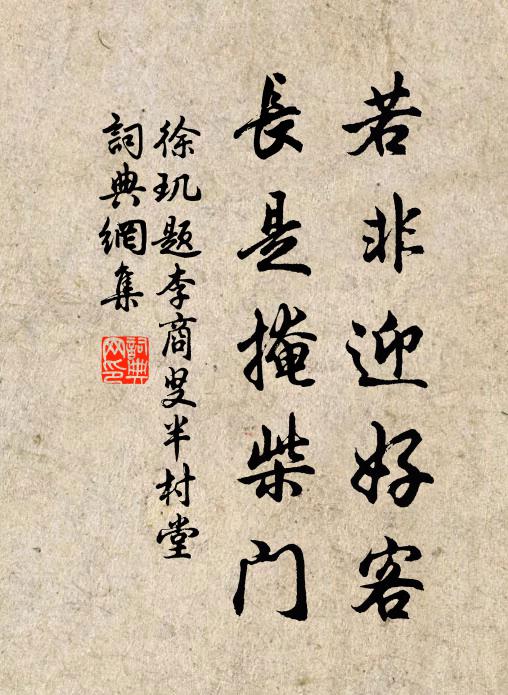 若非迎好客
長是掩柴门
徐玑题李商叟半村堂
詞典網集
詞典网印